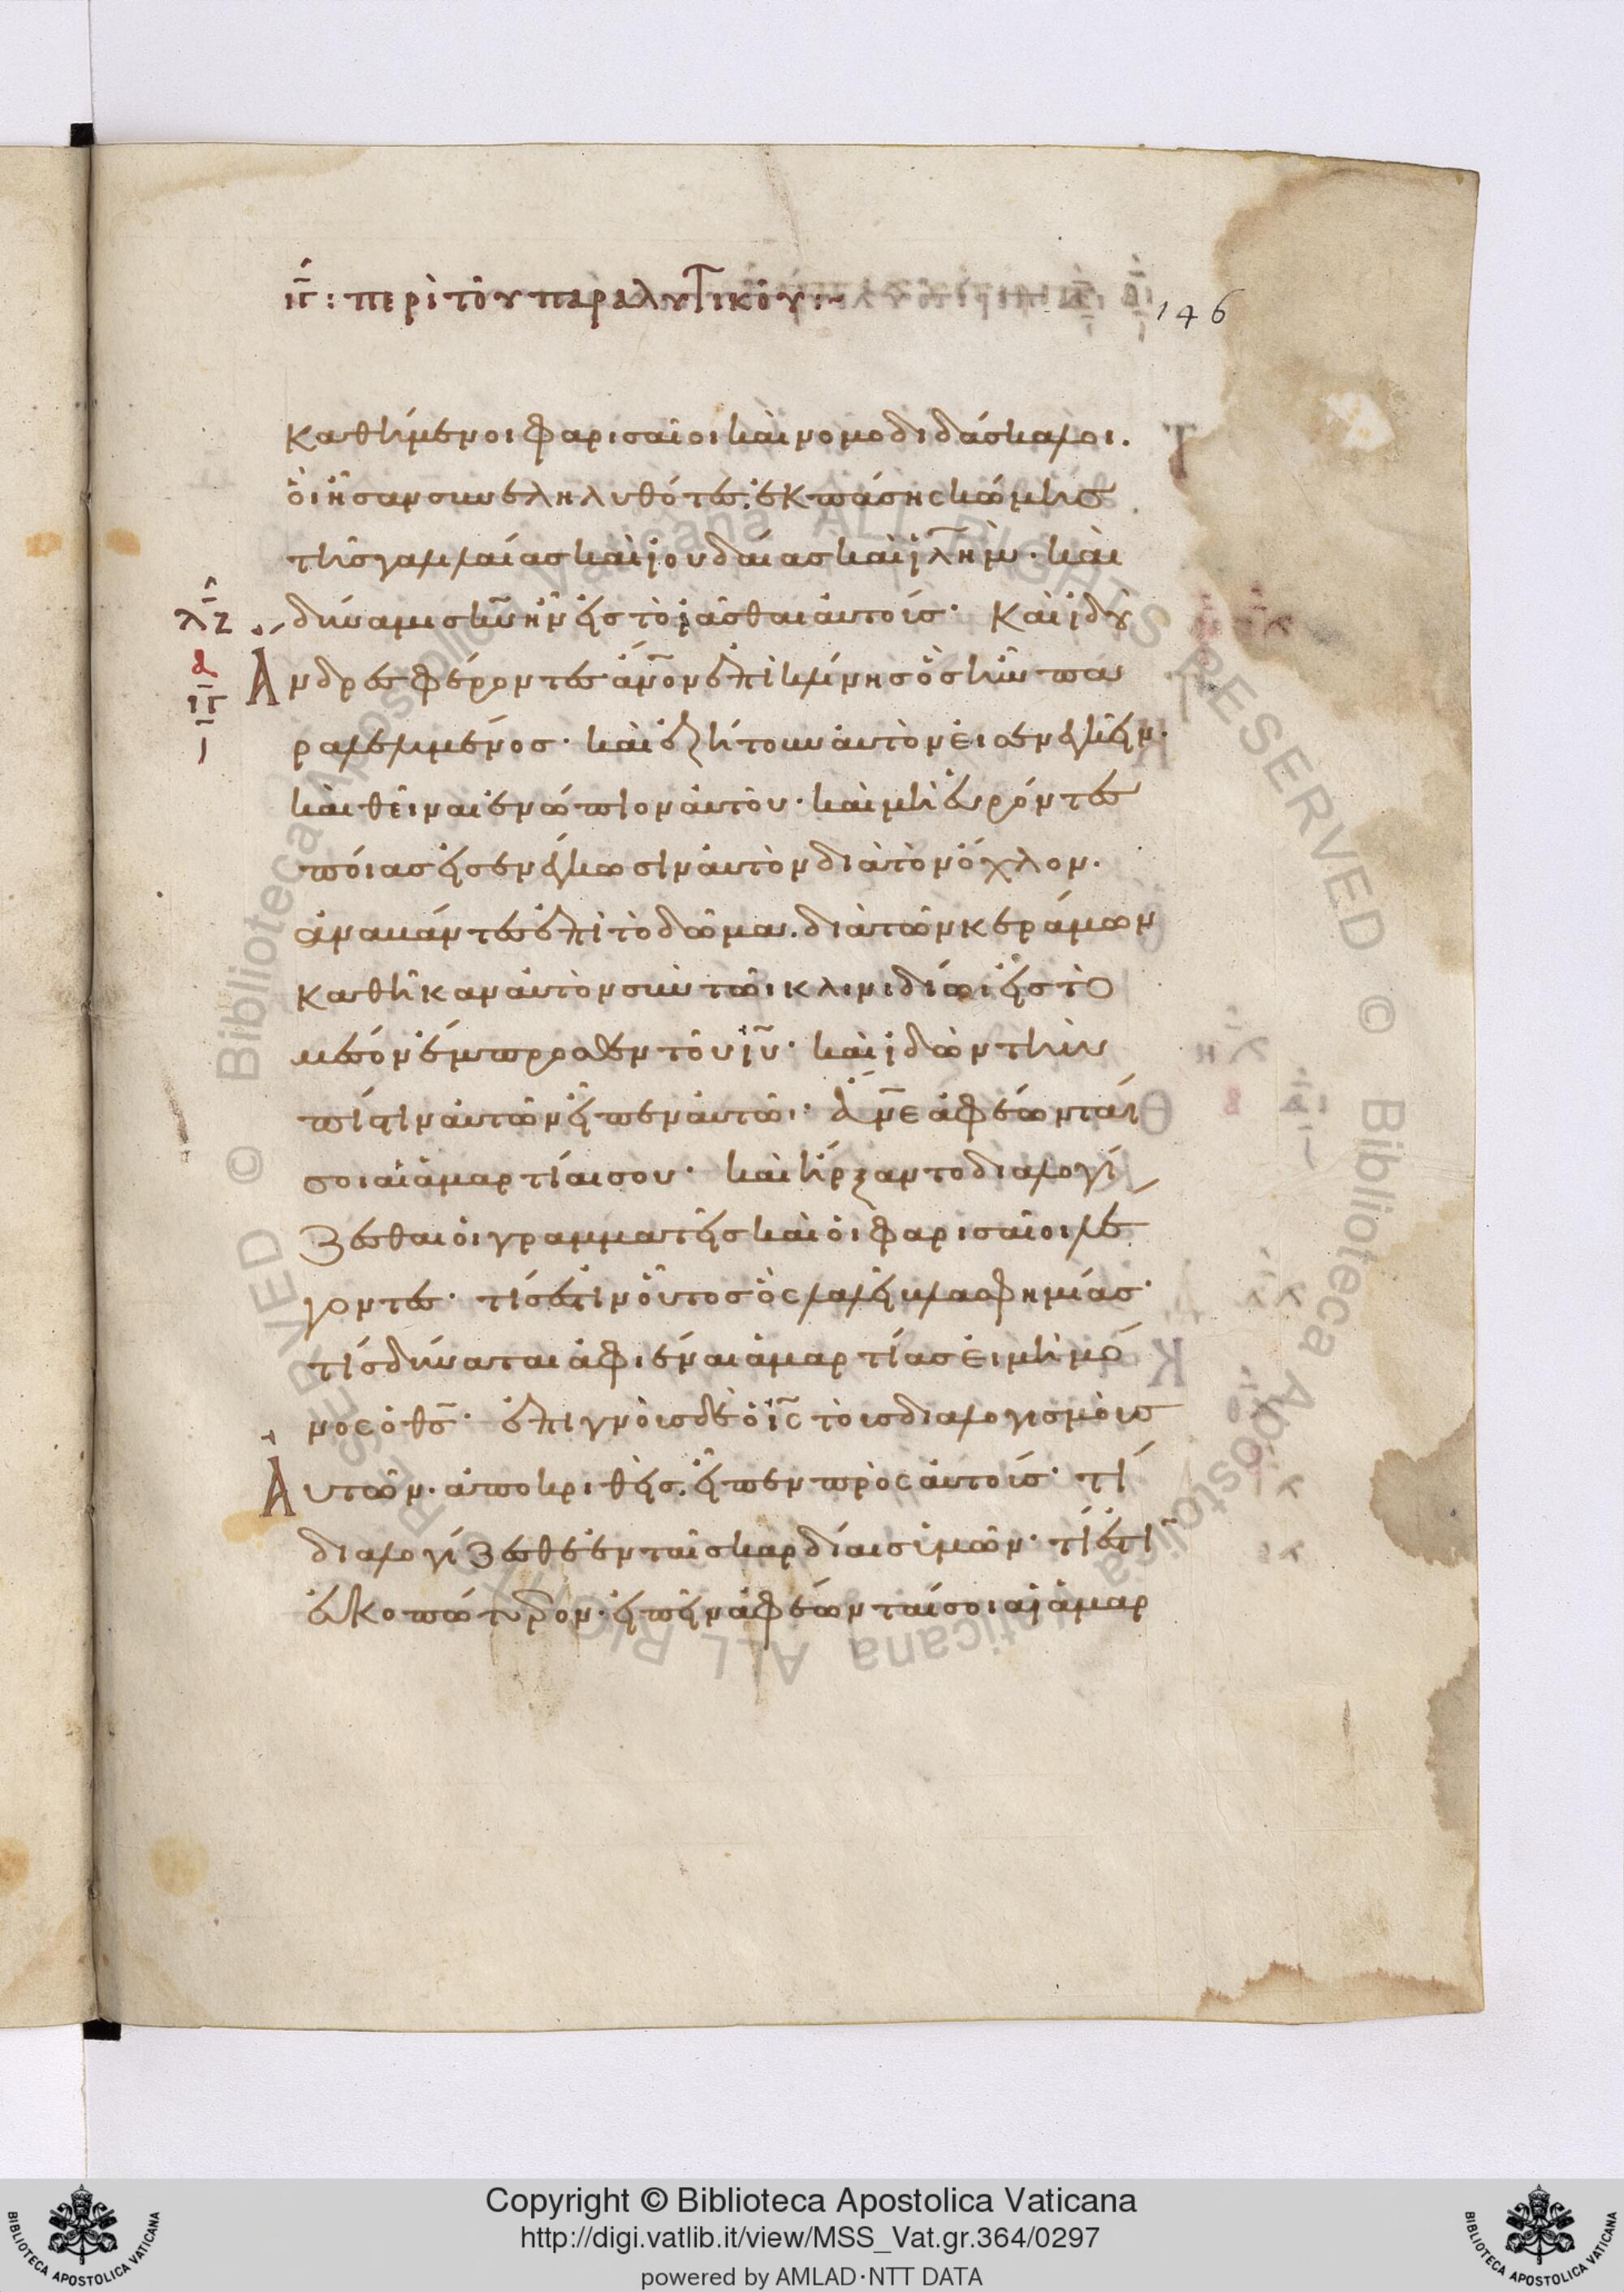 ιγ: περὶ τοῦ παραλυτικοῦ:~
146
καθήμενοι φαρισαῖοι καὶ νομοδιδάσκαλοι.
ὁὶ ἦσαν συνεληλυθότες. ἐκ πάσης κώμης
τῆς γαλιλαίας καὶ ἰουδαίας καὶ ἰλ̅η̅μ̅· καὶ
λζ δύναμις κ̅υ̅ ἦν εἰς τὸ ἰᾶσθαι ἀυτούς· Καὶ ἰδοὺ
α
ιγ
Ἀνδρες φέροντες ἄν̅ο̅ν̅ ἐπὶ κλίνης ὃς ἦν πα
ραλελυμένος· καὶ ἐζήτουν ἀυτὸν ἐισενεγκεῖν·
καὶ θεῖναι ἐνώπιον ἀυτοῦ· καὶ μὴ ἑυρόντες
ποίας εἰσενέγκωσιν ἀυτὸν διὰ τὸν ὄχλον.
ἀναβάντες ἐπὶ τὸ δῶμα. διὰ τῶν κεράμων
καθῆκαν ἀυτὸν σὺν τῶι κλινιδίωι εἰς τὸ
μέσον ἔμπροσθεν τοῦ ἰ̅υ̅· καὶ ἰδὼν τὴν
πίστιν ἀυτῶν εἶπεν ἀυτῶι· ἄ̅ν̅ε̅ ἀφέωνταί
σοι αἱ ἁμαρτίαι σου· καὶ ἤρξαντο διαλογί
ζεσθαι ὁι γραμματεῖς καὶ ὁι φαρισαῖοι λέ
γοντες· τίς ἐστιν οὗτος ὃς λαλεῖ βλασφημίας·
τίς δύναται ἀφιέναι ἁμαρτίας ἐι μὴ μό
νος ὁ θ̅ς̅· ἐπιγνοὺς δὲ ὁ ἰ̅ς̅ τοὺς διαλογισμοὺς
Ἀυτῶν. ἀποκριθεὶς. εἶπεν πρὸς ἀυτούς· τί
διαλογίζεσθε ἐν ταῖς καρδίαις ὑμῶν· τί ἐστὶ̅
ἐυκοπώτερον. εἰπεῖν ἀφέωνταί σοι αἱ ἁμαρ
Copyright © Biblioteca Apostolica Vaticana
http://digi.vatlib.it/view/MSS_Vat.gr.364/0297
powered by AMLAD·NTT DATA
BIBLIOTECA APOSTOLICA VATICANA
BIBLIOTECA APOSTOLICA VATICANA
© Biblioteca Apostolica Vaticana ALL RIGHTS RESERVED © Biblioteca Apostolica Vaticana ALL RIGHTS RESERVED